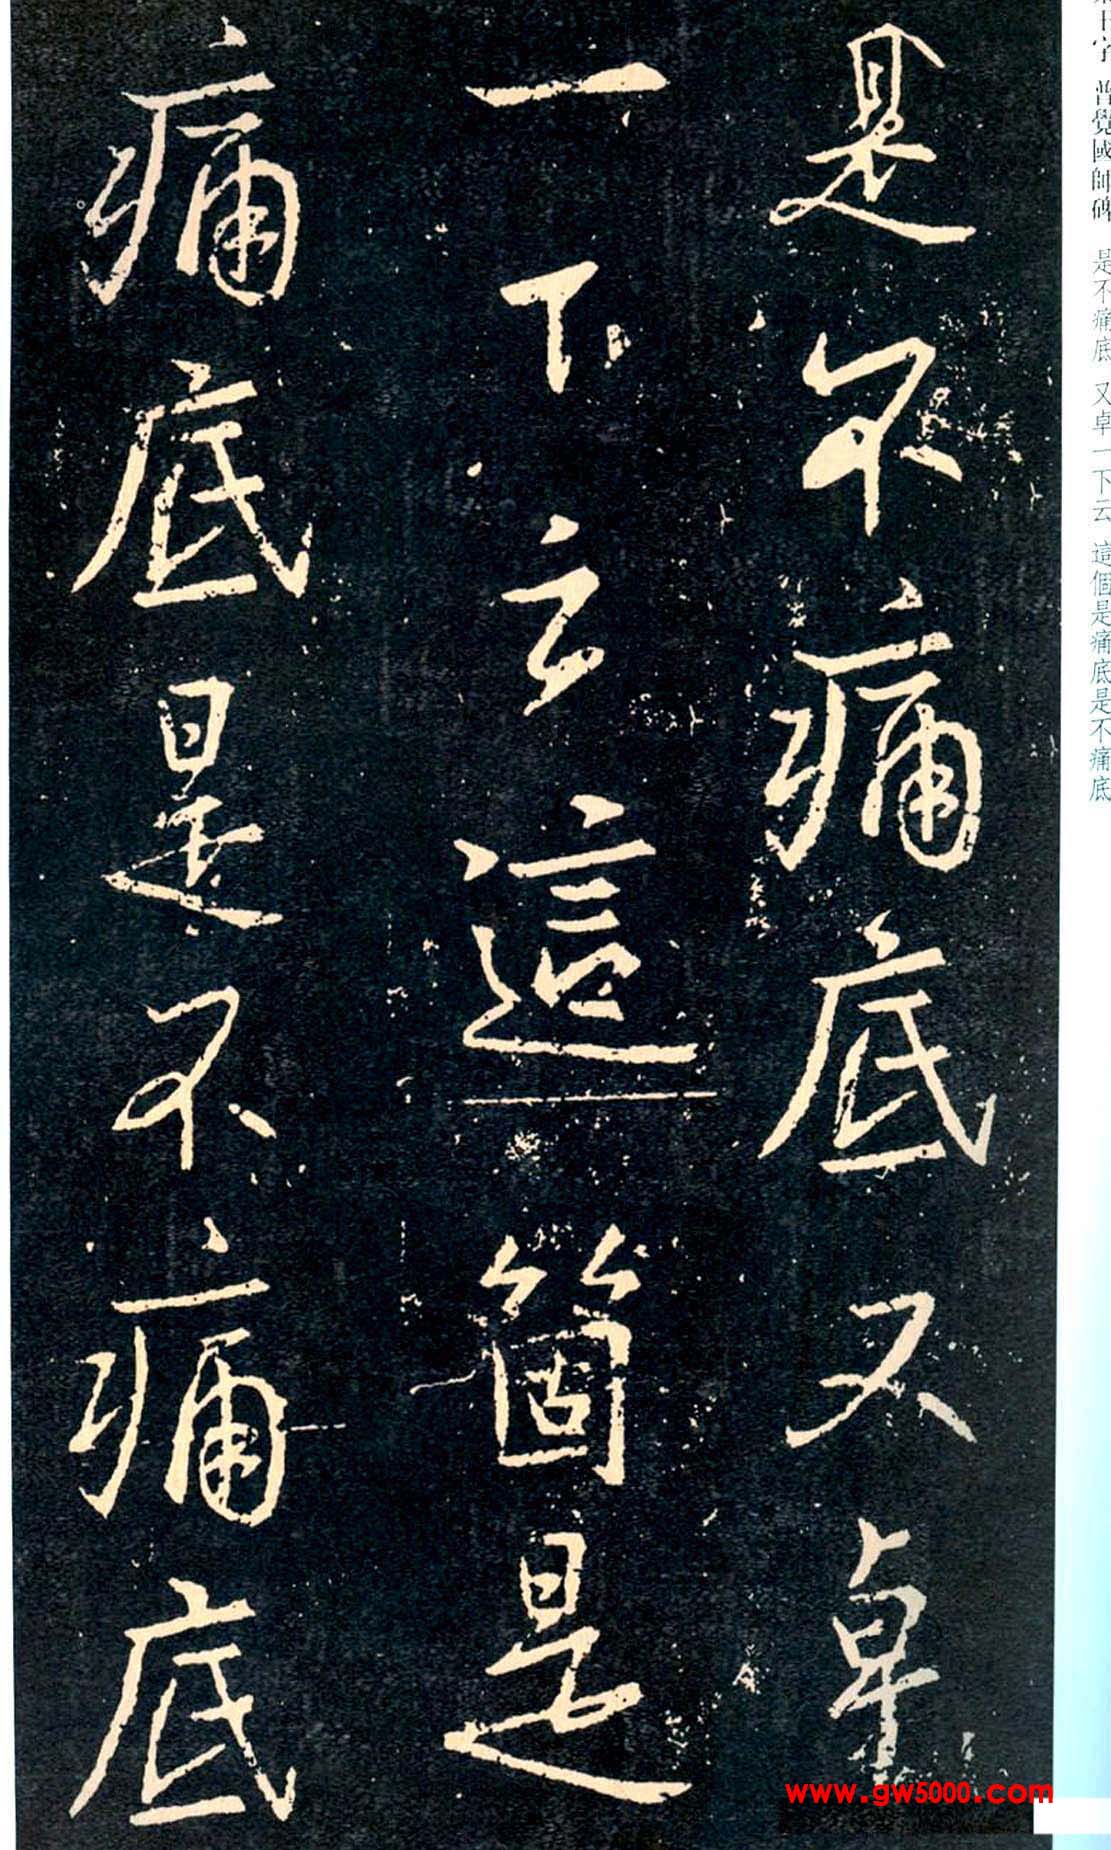 是不痛底又卓
一下云這箇是
痛底是不痛底
集王字 普覺國師碑 是不痛底 又卓一下云 這個是痛底是不痛底
www.gw5000.com